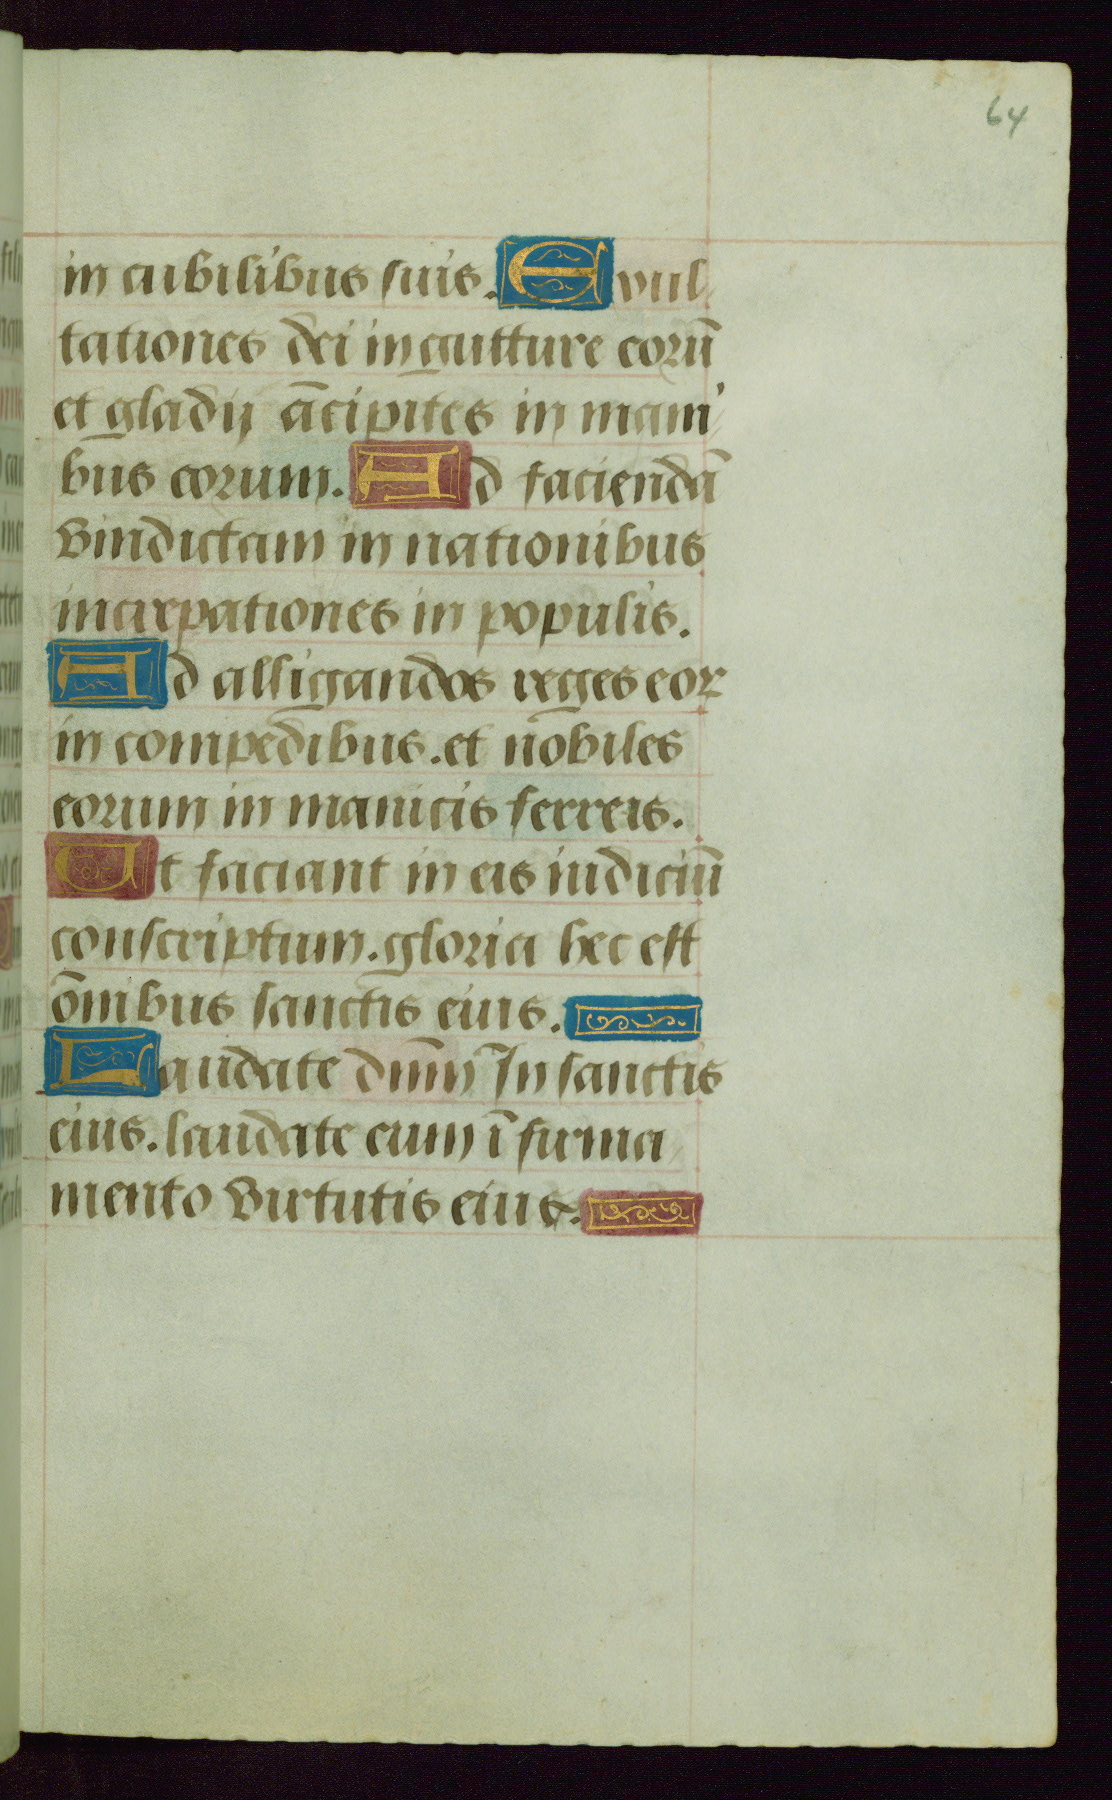 64
in cubilibus suis. Exul-
tationes dei in gutture eorū
et gladij ācipites in mani-
bus eorum. Ad faciendā
vindictam in nationibus
increpationes in populis.
Ad alligandos reges eor
in compedibus. et nobiles
eorum in manicis ferreis.
Ut faciant in eis iudiciū
conscriptum. gloria hec est
ōnibus sanctis eius.
Laudate dnm̄ In sanctis
eius. laudate eum ī firma
mento virtutis eius.